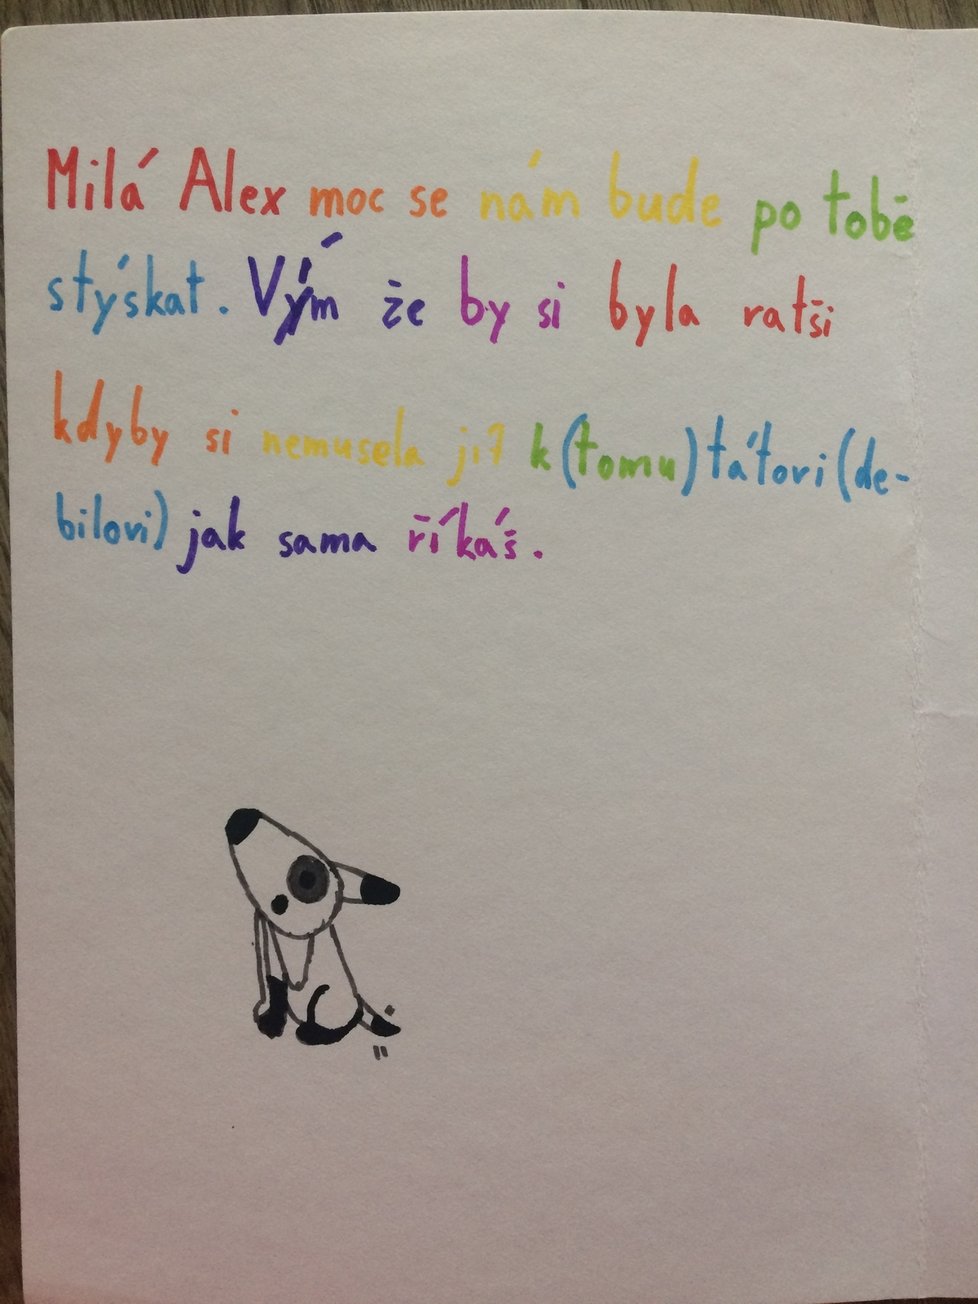 Milá Alex moc se nám bude po tobě
stýskat. Vým že by si byla ratši
kdyby si nemusela jít k (tomu) táťovi (de-
bilovi) jak sama říkáš.